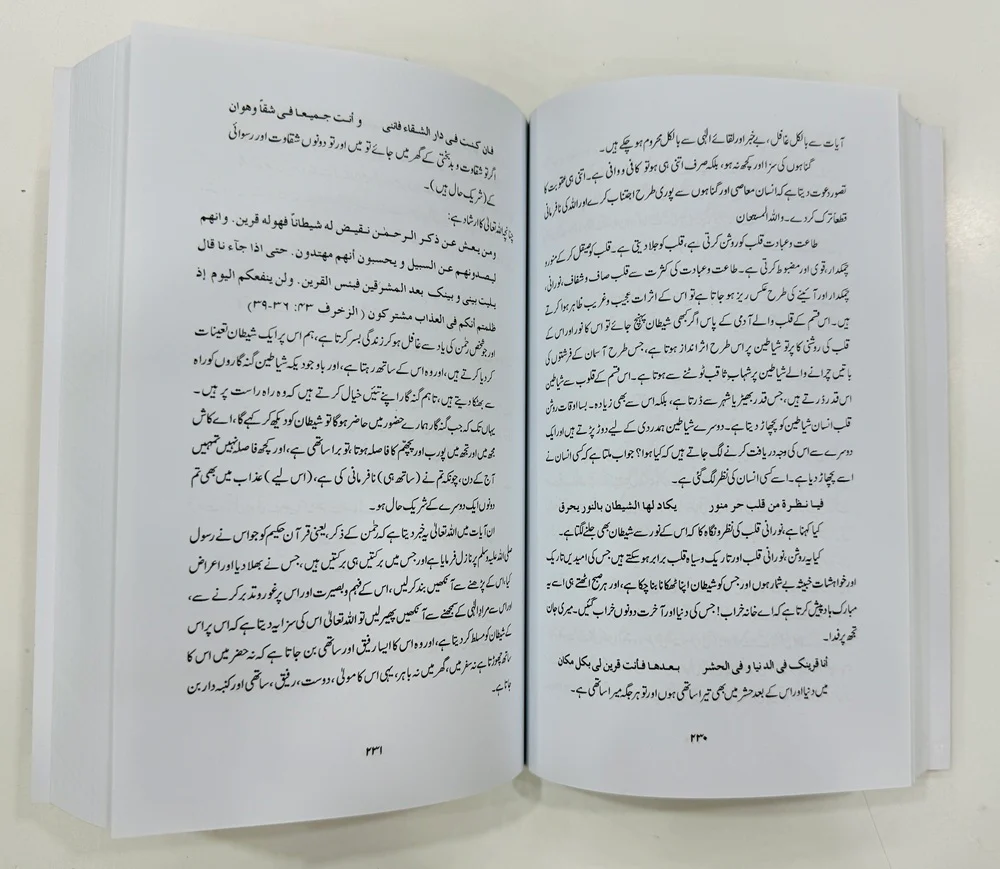 آیات سے بالکل غافل، بے خبر اور لقائے الٰہی سے بالکل محروم ہو چکے ہیں۔
گناہوں کی سزا اور کچھ نہ ہو، بلکہ صرف اتنی ہی ہو تو کافی و وافی ہے۔ اتنی ہی عقوبت کا
تصور دعوت دیتا ہے کہ انسان معاصی اور گناہوں سے پوری طرح اجتناب کرے اور اللہ کی نافرمانی
قطعاً ترک کر دے۔ واللہ المستعان
طاعت و عبادت قلب کو روشن کرتی ہے، قلب کو جلا دیتی ہے۔ قلب کو صیقل کر کے منور و
چمکدار، قوی اور مضبوط کرتی ہے۔ طاعت و عبادت کی کثرت سے قلب صاف و شفاف، نورانی،
چمکدار اور آئینے کی طرح عکس ریز ہو جاتا ہے تو اس کے اثرات عجیب و غریب ظاہر ہوا کرتے
ہیں۔ اس قسم کے قلب والے آدمی کے پاس اگر کبھی شیطان پہنچ جائے تو اس کا نور اور اس کے
قلب کی روشنی کا پرتو شیاطین پر اس طرح اثر انداز ہوتا ہے، جس طرح آسمان کے فرشتوں کی
باتیں چرانے والے شیاطین پر شہاب ثاقب ٹوٹنے سے ہوتا ہے۔ اس قسم کے قلوب سے شیاطین
اس قدر ڈرتے ہیں، جس قدر بھیڑیا شیر سے ڈرتا ہے، بلکہ اس سے بھی زیادہ۔ بسا اوقات روشن
قلب انسان شیاطین کو پچھاڑ دیتا ہے۔ دوسرے شیاطین ہمدردی کے لیے دوڑ پڑتے ہیں اور ایک
دوسرے سے اس کی وجہ دریافت کرنے لگ جاتے ہیں کہ کیا ہوا؟ جواب ملتا ہے کہ کسی انسان نے
اسے پچھاڑ دیا ہے۔ اسے کسی انسان کی نظر لگ گئی ہے۔
فيا نظرة من قلب حر منور يكاد لها الشيطان بالنور يحرق
کیا کہنا ہے، نورانی قلب کی نظر و نگاہ کا کہ اس کے نور سے شیطان بھی جلنے لگتا ہے۔
کیا یہ روشن، نورانی قلب اور تاریک و سیاہ قلب برابر ہو سکتے ہیں، جس کی امیدیں تاریک
اور خواہشات خبیثہ بے شمار ہوں اور جس کو شیطان اپنا ٹھکانا بنا چکا ہے، اور ہر صبح اٹھتے ہی اسے یہ
مبارک باد پیش کرتا ہے کہ اے خانہ خراب! جس کی دنیا اور آخرت دونوں خراب گئیں۔ میری جان
تجھ پر فدا۔
أنا قرينك فى الدنيا و فى الحشر بعدها فأنت قرين لى بكل مكان
میں دنیا اور اس کے بعد حشر میں بھی تیرا ساتھی ہوں اور تو ہر جگہ میرا ساتھی ہے۔
۲۳۰
فان كنت فى دار الشقاء فاننى و أنت جميعا فى شقاً وهوان
اگر تو شقاوت و بدبختی کے گھر میں جائے تو میں اور تو دونوں شقاوت اور رسوائی
کے (شریک حال ہیں)۔
چنانچہ اللہ تعالیٰ کا ارشاد ہے:
ومن يعش عن ذكر الرحمٰن نقيض له شيطاناً فهو له قرين. وانهم
ليصدونهم عن السبيل و يحسبون أنهم مهتدون. حتى اذا جآء نا قال
يليت بينى و بينك بعد المشرقين فبئس القرين. ولن ينفعكم اليوم إذ
ظلمتم أنكم فى العذاب مشتركون (الزخرف ۴۳: ۳۶-۳۹)
اور جو شخص رحمٰن کی یاد سے غافل ہو کر زندگی بسر کرتا ہے، ہم اس پر ایک شیطان تعینات
کر دیا کرتے ہیں، اور وہ اس کے ساتھ رہتا ہے، اور باوجودیکہ شیاطین گنہگاروں کو راہ
سے بھٹکا دیتے ہیں، تاہم گنہگار اپنے تئیں خیال کرتے ہیں کہ وہ راہ راست پر ہیں۔
یہاں تک کہ جب گنہگار ہمارے حضور میں حاضر ہوگا تو شیطان کو دیکھ کر کہے گا، اے کاش
مجھ میں اور تجھ میں پورب اور پچھم کا فاصلہ ہوتا، تو برا ساتھی ہے، اور کچھ فاصلہ نہیں تمہیں
آج کے دن، چونکہ تم نے (ساتھ ہی) نافرمانی کی ہے، (اس لیے) عذاب میں بھی تم
دونوں ایک دوسرے کے شریک حال ہو۔
ان آیات میں اللہ تعالیٰ یہ خبر دیتا ہے کہ رحمٰن کے ذکر، یعنی قرآن حکیم کو جو اس نے رسول
صلی اللہ علیہ وسلم پر نازل فرمایا ہے اور جس میں برکتیں ہی برکتیں ہیں، جس نے بھلا دیا اور اعراض
کیا، اس کے پڑھنے سے آنکھیں بند کر لیں، اس کے فہم و بصیرت اور اس پر غور و تدبر کرنے سے،
اور اس سے مراد الٰہی کے سمجھنے سے آنکھیں پھیر لیں تو اللہ تعالیٰ اس کی سزا یہ دیتا ہے کہ اس پر اس
کے شیطان کو مسلط کر دیتا ہے، اور وہ اس کا ایسا رفیق اور ساتھی بن جاتا ہے کہ نہ حضر میں اس کا
ساتھ چھوڑتا ہے نہ سفر میں، گھر میں نہ باہر، یہی اس کا مولیٰ، دوست، رفیق، ساتھی اور کنبہ دار بن
جاتا ہے۔
۲۳۱